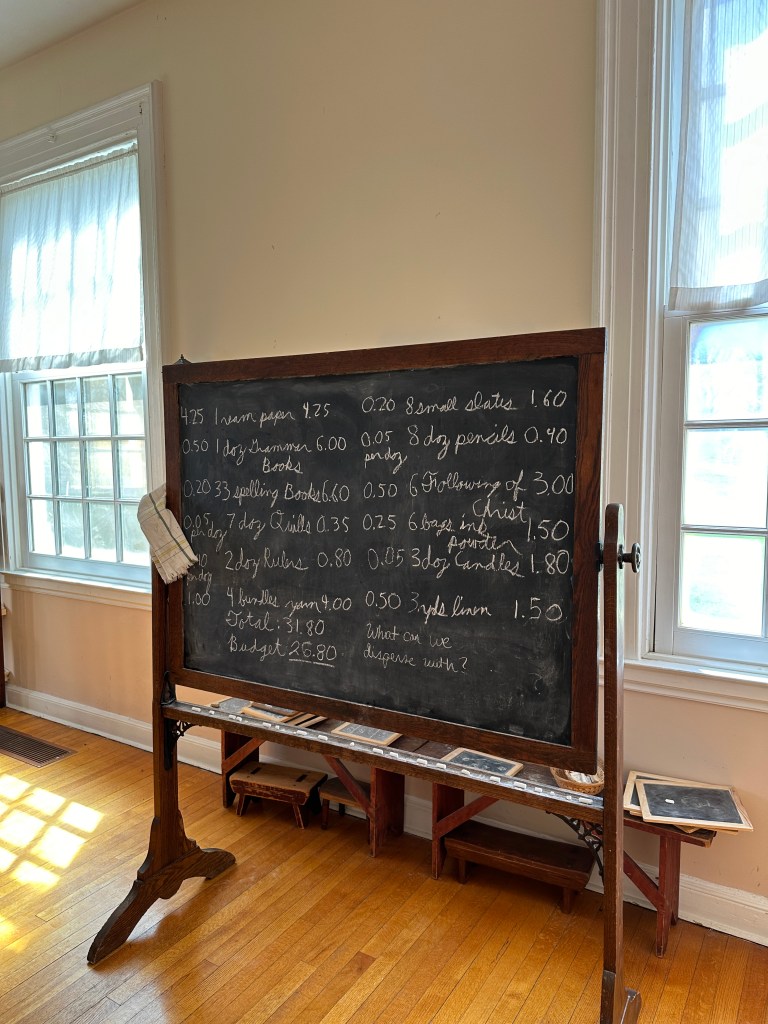 4.25 1 ream paper 4.25
0.50 1 doz Grammer 6.00
Books
0.20 33 spelling Books 6.60
0.05 7 doz Quills 0.35
per doz
2 doz Rulers 0.80
per doz
1.00 4 bundles yarn 4.00
Total: 31.80
Budget 26.80
0.20 8 small slates 1.60
0.05 8 doz pencils 0.40
per doz
0.50 6 Following of 3.00
Christ
0.25 6 bags ink 1.50
powder
0.05 3 doz Candles 1.80
0.50 3 yds linen 1.50
What can we
dispense with?